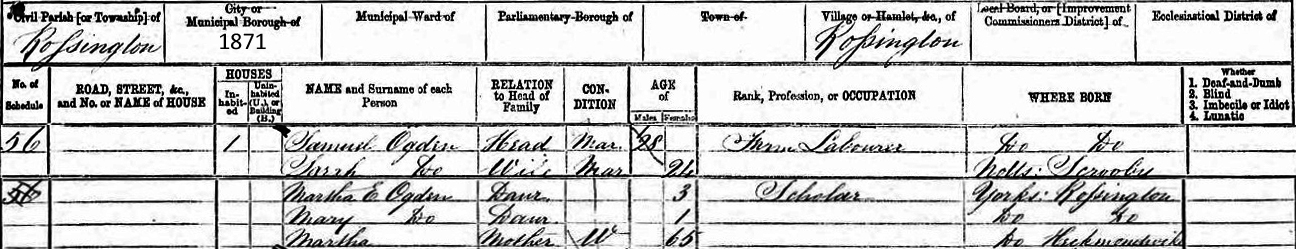 Civil Parish [or Township] of
Rossington
City or Municipal Borough of
1871
Municipal Ward of
Parliamentary Borough of
Town of
Village or Hamlet, &c., of
Rossington
Local Board, or [Improvement Commissioners District] of
Ecclesiastical District of
No. of Schedule
ROAD, STREET, &c., and No. or NAME of HOUSE
HOUSES
In-habit-ed
Unin-habited (U.), or Building (B.)
NAME and Surname of each Person
RELATION to Head of Family
CON-DITION
AGE of
Males Females
Rank, Profession, or OCCUPATION
WHERE BORN
Whether
1. Deaf-and-Dumb
2. Blind
3. Imbecile or Idiot
4. Lunatic
56 1 Samuel Ogden Head Mar. 28 Farm Labourer Do Do
Sarah Do Wife Mar 24 Notts: Scrooby
56 Martha E Ogden Daur 3 Scholar Yorks: Rossington
Mary Do Daur 1 Do Do
Martha Mother W 65 Do